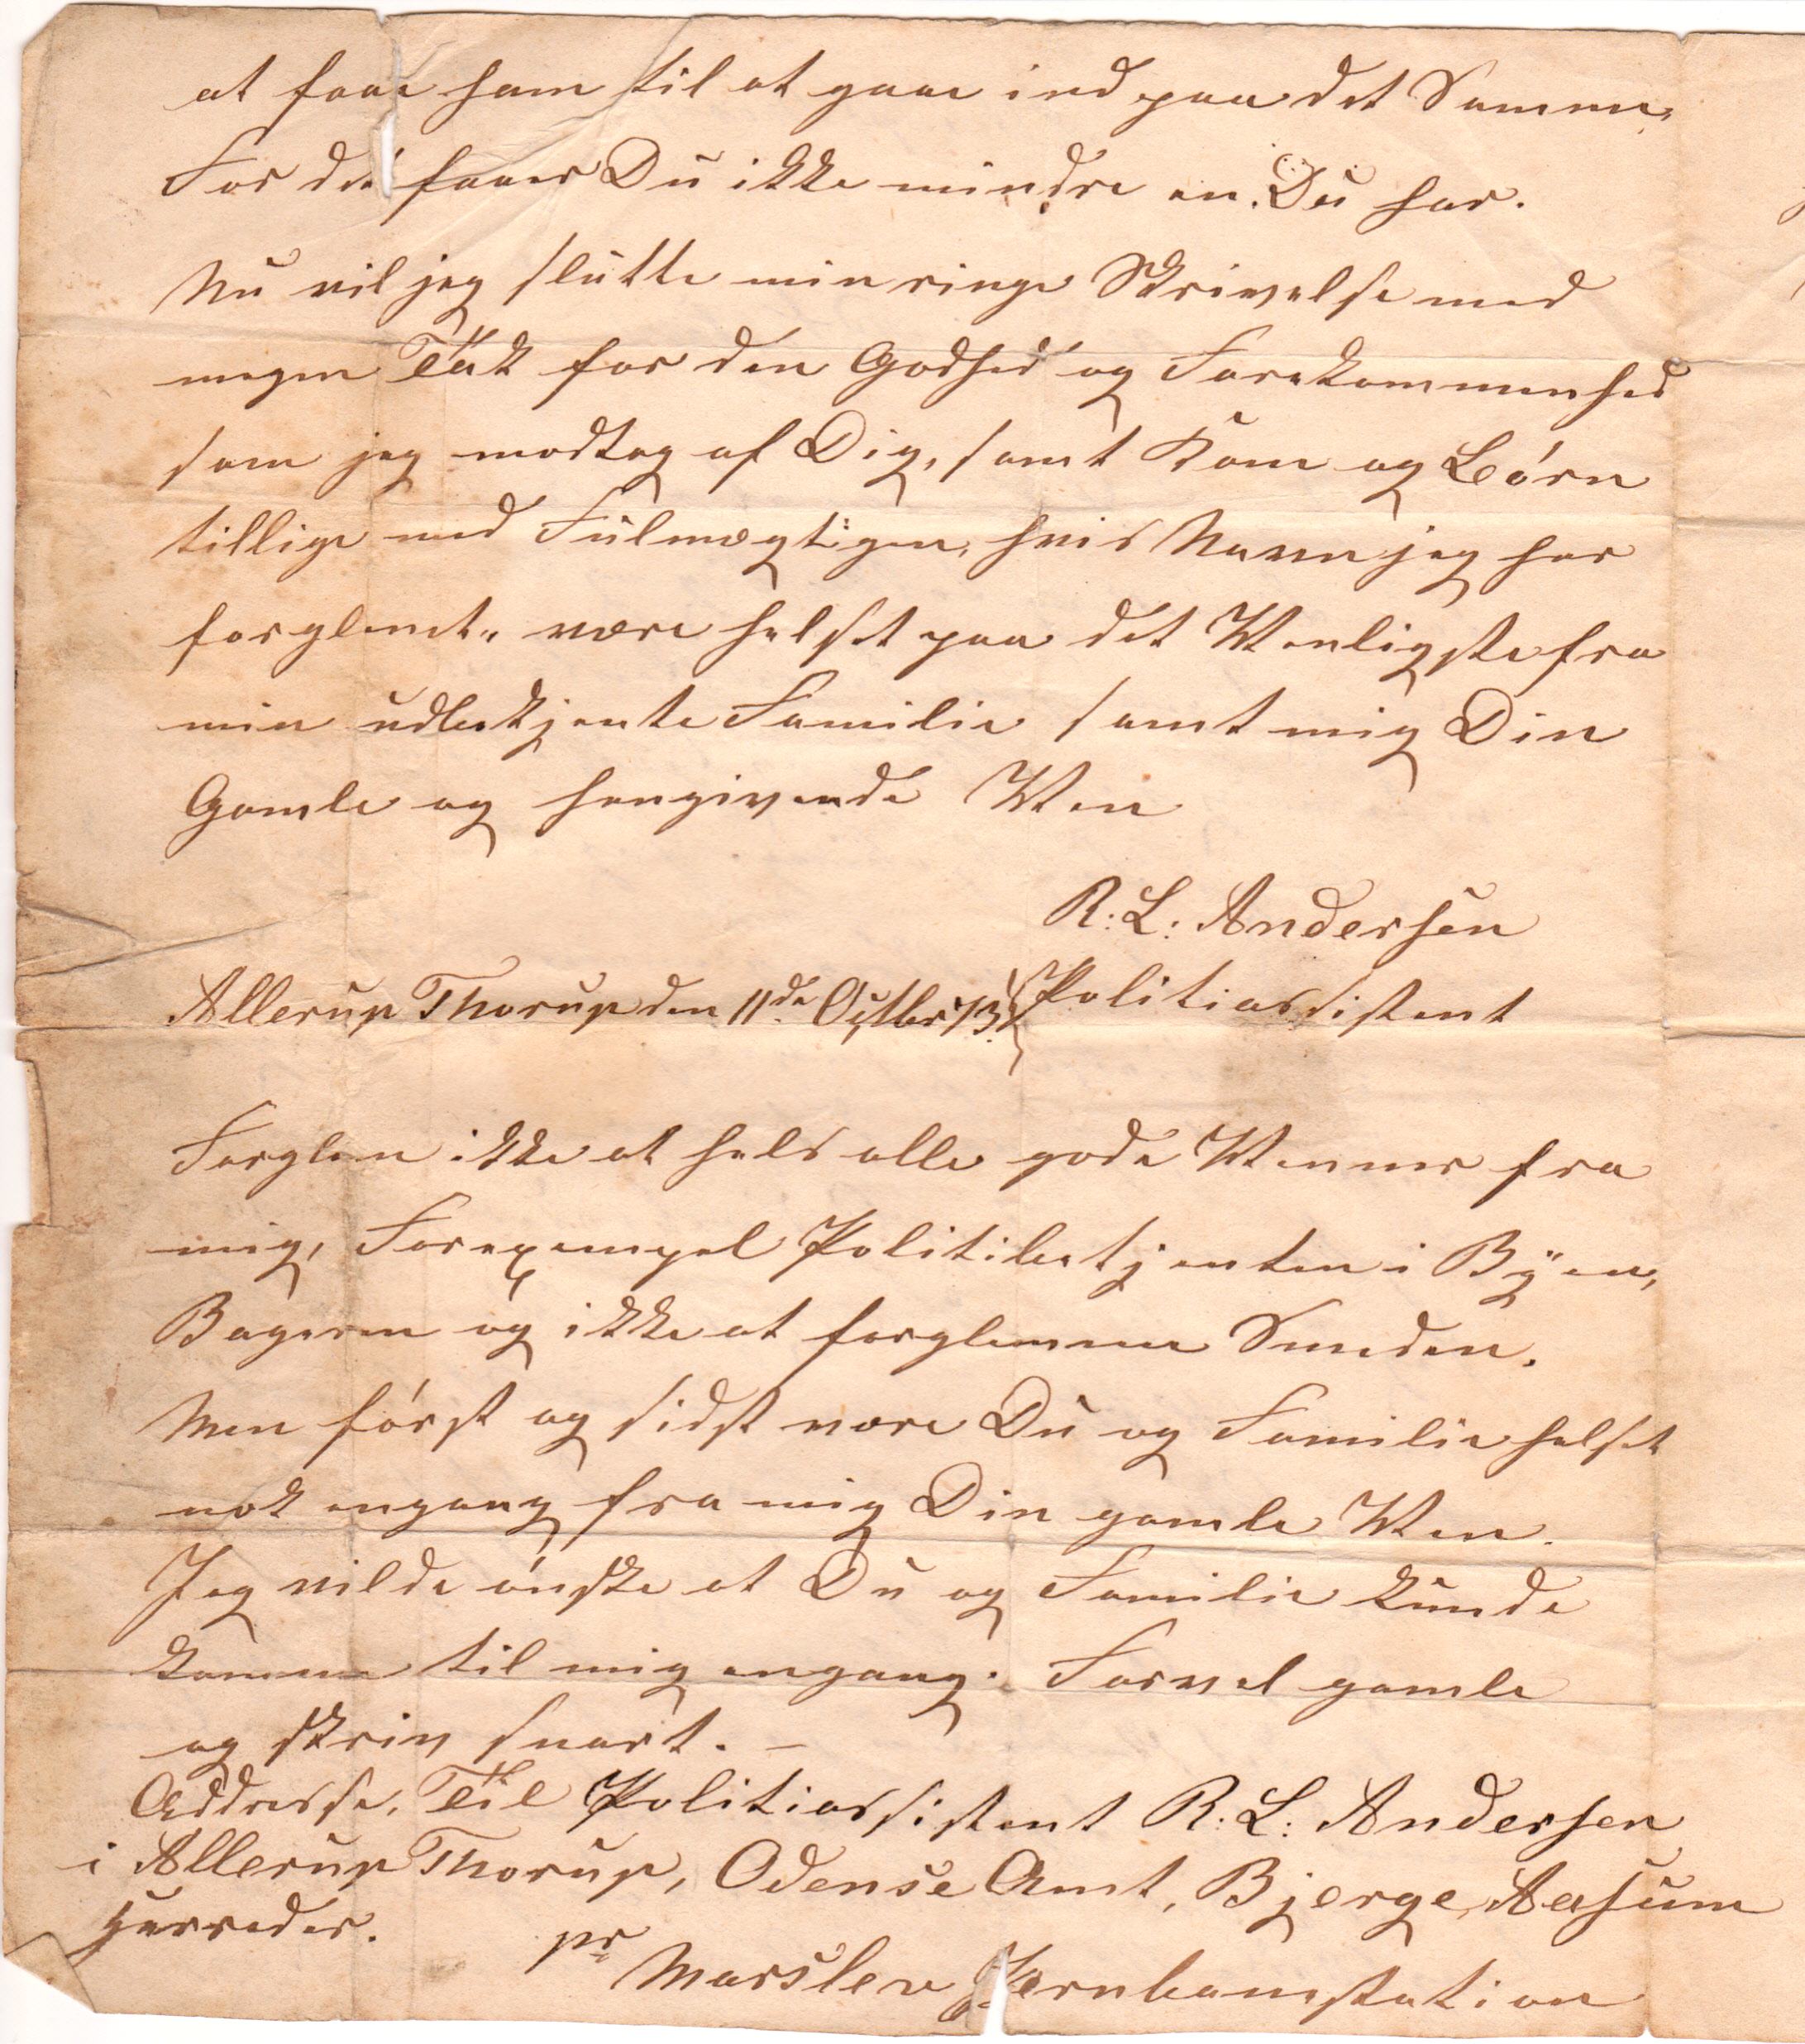 at faae ham til at gaae ind paa det Samme,
For det faaer Du ikke mindre en Du har.
Nu vil jeg slutte min ringe Skrivelse med
megen Tak for den Godhed og Forekommenhed
som jeg modtog af Dig, samt Kone og Börn
tillige med Fulmægtigen, hvis Navn jeg har
forglemt" være helset paa det Wenligste fra
min udbekjente Familie samt mig Din
Gamle og hengivende Wen
R: L: Andersen
Allerup Thorup den 11de Octbr 73. Politiassistent
Forglem ikke at hels alle gode Wenner fra
mig, Forexempel Politibetjenten i Byen,
Bageren og ikke at forglemme Smeden.
Men först og sidst være Du og Familie helset
nok engang fra mig Din gamle Wen.
Jeg vilde önske at Du og Familie kunde
komme til mig engang. Farvel gamle
og skriv snart. –
Addresse, Til Politiassistent R: L: Andersen
i Allerup Thorup, Odense Amt, Bjerge Aasum
Herreder.
pr Marslev Jernbanstation